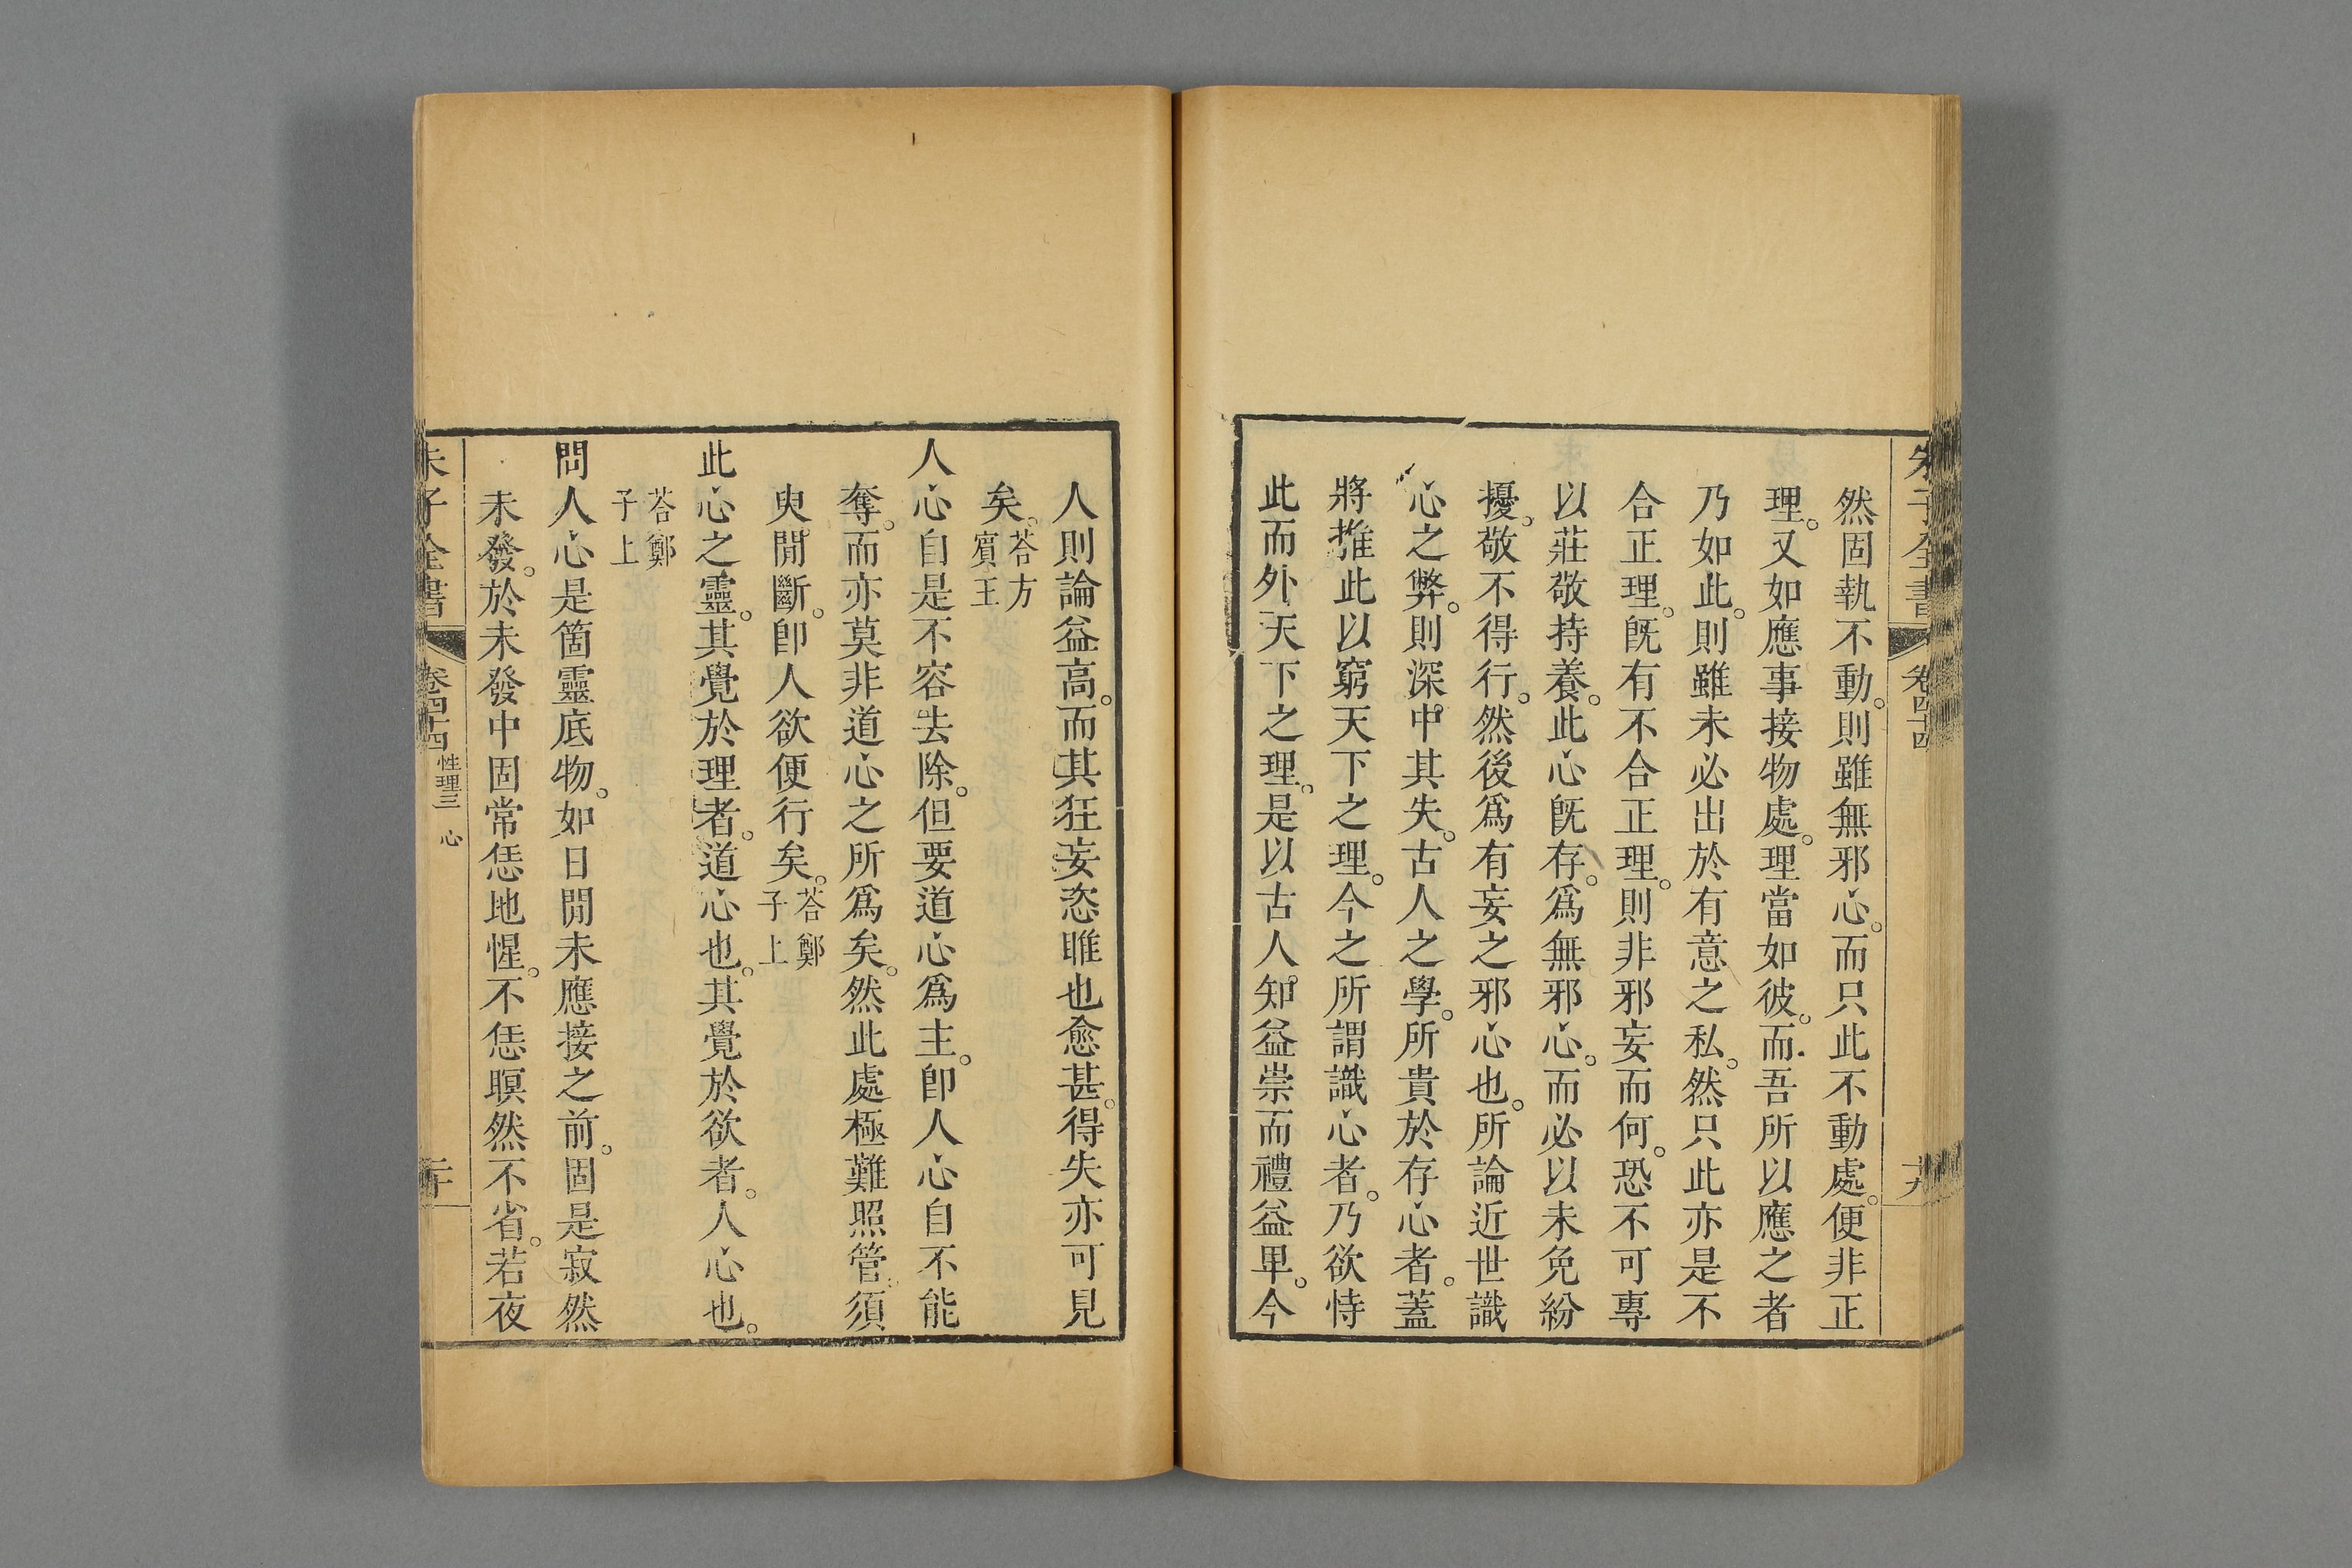 朱子全書 卷四十四 十九
然固執不動。則雖無邪心。而只此不動處。便非正
理。又如應事接物處。理當如彼。而吾所以應之者
乃如此。則雖未必出於有意之私。然只此亦是不
合正理。旣有不合正理。則非邪妄而何。恐不可專
以莊敬持養。此心旣存。爲無邪心。而必以未免紛
擾。敬不得行。然後爲有妄之邪心也。所論近世識
心之弊。則深中其失。古人之學。所貴於存心者。蓋
將推此以窮天下之理。今之所謂識心者。乃欲恃
此而外天下之理。是以古人知益崇而禮益畢。今
人則論益高。而其狂妄恣睢也愈甚。得失亦可見
矣。荅方賓王
人心自是不容去除。但要道心爲主。卽人心自不能
奪。而亦莫非道心之所爲矣。然此處極難照管。須
臾閒斷。卽人欲便行矣。荅鄭子上
此心之靈。其覺於理者。道心也。其覺於欲者。人心也。
荅鄭子上
問人心是箇靈底物。如日閒未應接之前。固是寂然
未發。於未發中固常恁地惺。不恁瞑然不省。若夜
朱子全書 卷四十四 性理三 心 二十